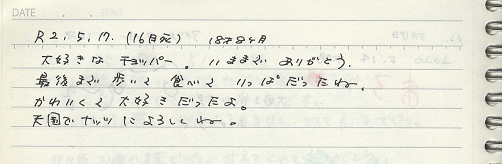 DATE
R2.5.17.(16日死) 18才8ヶ月
大好きな チョッパー。 いままで ありがとう。
最後まで 歩いて 食べて りっぱだったね。
かわいくて 大好きだったよ。
天国で ナッツによろしくね。